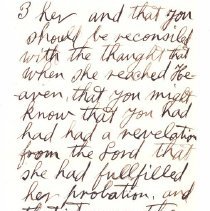 3 her and that you
should be reconsild
with the thought that
when she reached He-
aven, that you might
know that you had
had had a revelation
from the Lord that
she had fullfilled
her probation, and